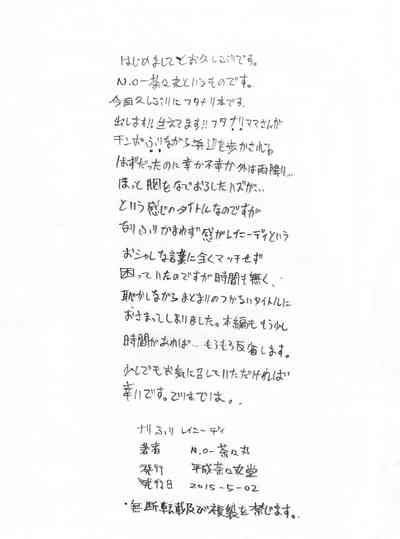 はじめましてとお久しぶりです。
N.O-茶々丸というものです。
今回久しぶりにフタナリ本です。
出します!!生えてます!!フタナリママさんが
チンポふりながら
はずだったのに幸か不幸か外は雨降り…
ほっと胸をなでおろしたハズが…
という感じのタイトルなのですが
なりふりかまわず感がレイニーデイという
おシャレな言葉に全くマッチせず
困っていたのですが時間も無く、
恥かしながらまとまりのつかないタイトルに
おさまってしまいました。本編ももう少し
時間があれば…もろもろ反省します。
少しでもお気に召していただければ
幸いです。でわでは。
ナリふり レイニーデイ
著者 N.O-茶々丸
発行 平成茶々丸堂
発行日 2015-5-02
・無断転載及び複製を禁じます。